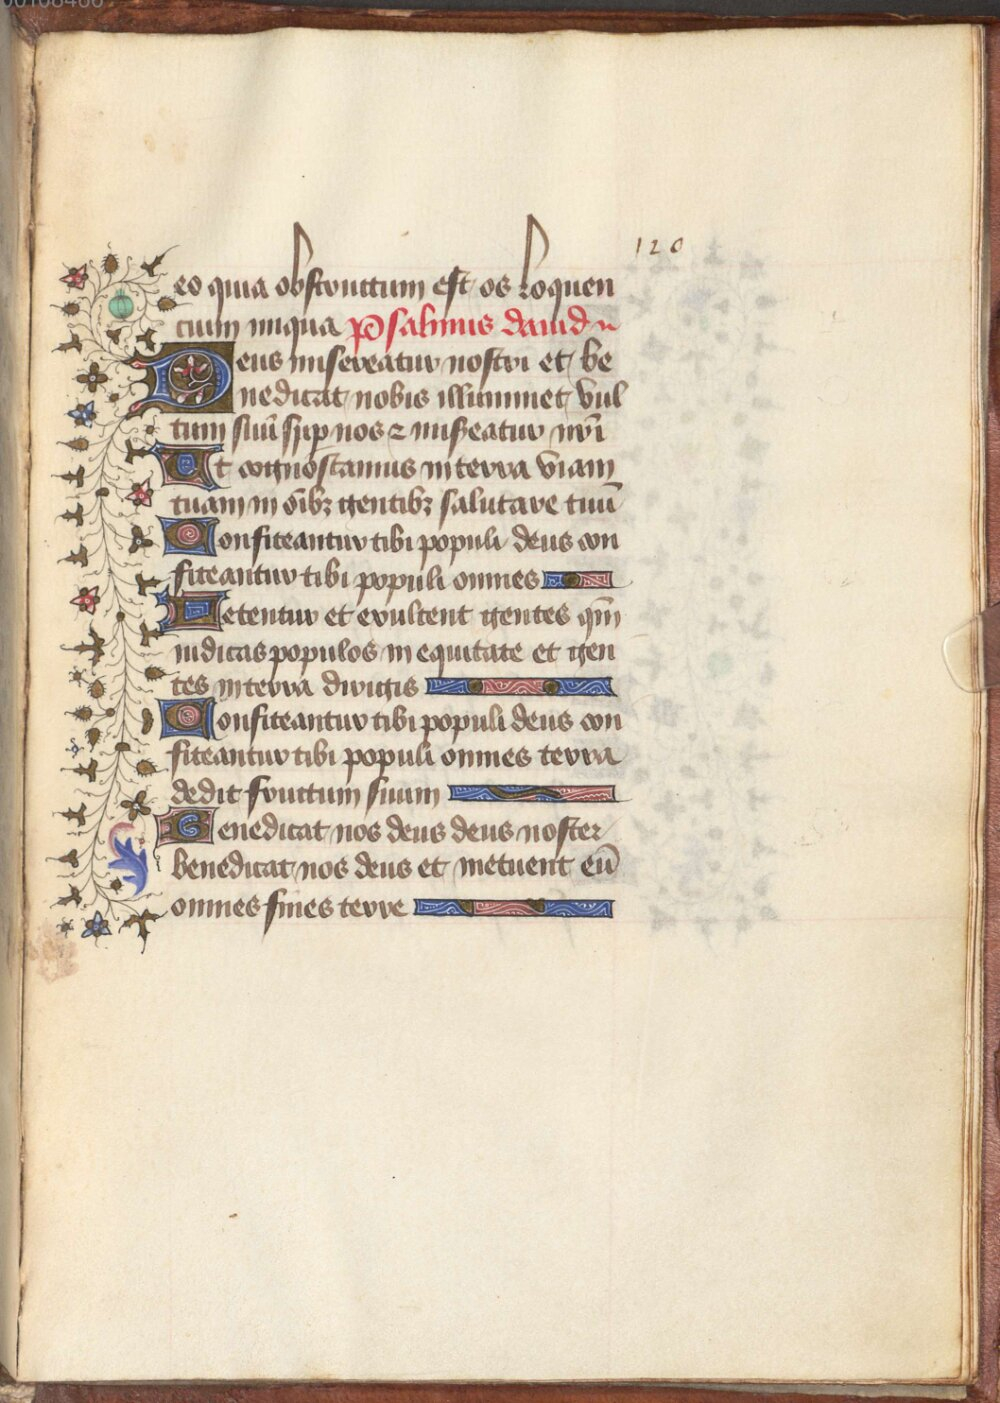 00108466
120
eo quia obstructum est os loquen
cium iniqua psalmus dauid
Deus misereatur nostri et be
nedicat nobis illuminet vul
tum suū sup nos ⁊ misereatur nrī
Ut cognoscamus in terra viam
tuam in oībꝫ gentibꝫ salutare tuū
Confiteantur tibi populi deus con
fiteantur tibi populi omnes
Letentur et exultent gentes qm̄
iudicas populos in equitate et gen
tes in terra dirigis
Confiteantur tibi populi deus con
fiteantur tibi populi omnes terra
dedit fructum suum
Benedicat nos deus deus noster
benedicat nos deus et metuent eū
omnes fines terre